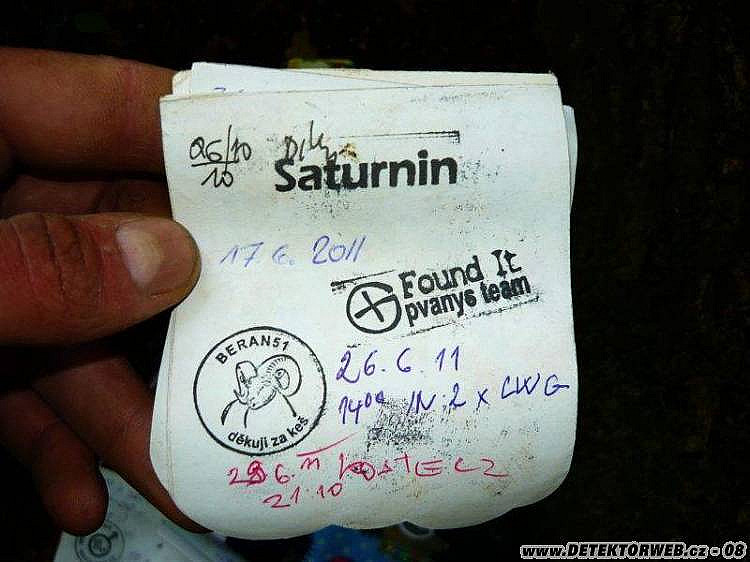 26/10
10
Díky
Saturnin
17 6. 2011
Found It
pvanys team
BERAN51
děkuji za keš
26.6.11
14⁰⁰ IN 2 x CWG
28 6. 11
21:10
www.DETEKTORWEB.cz - 08